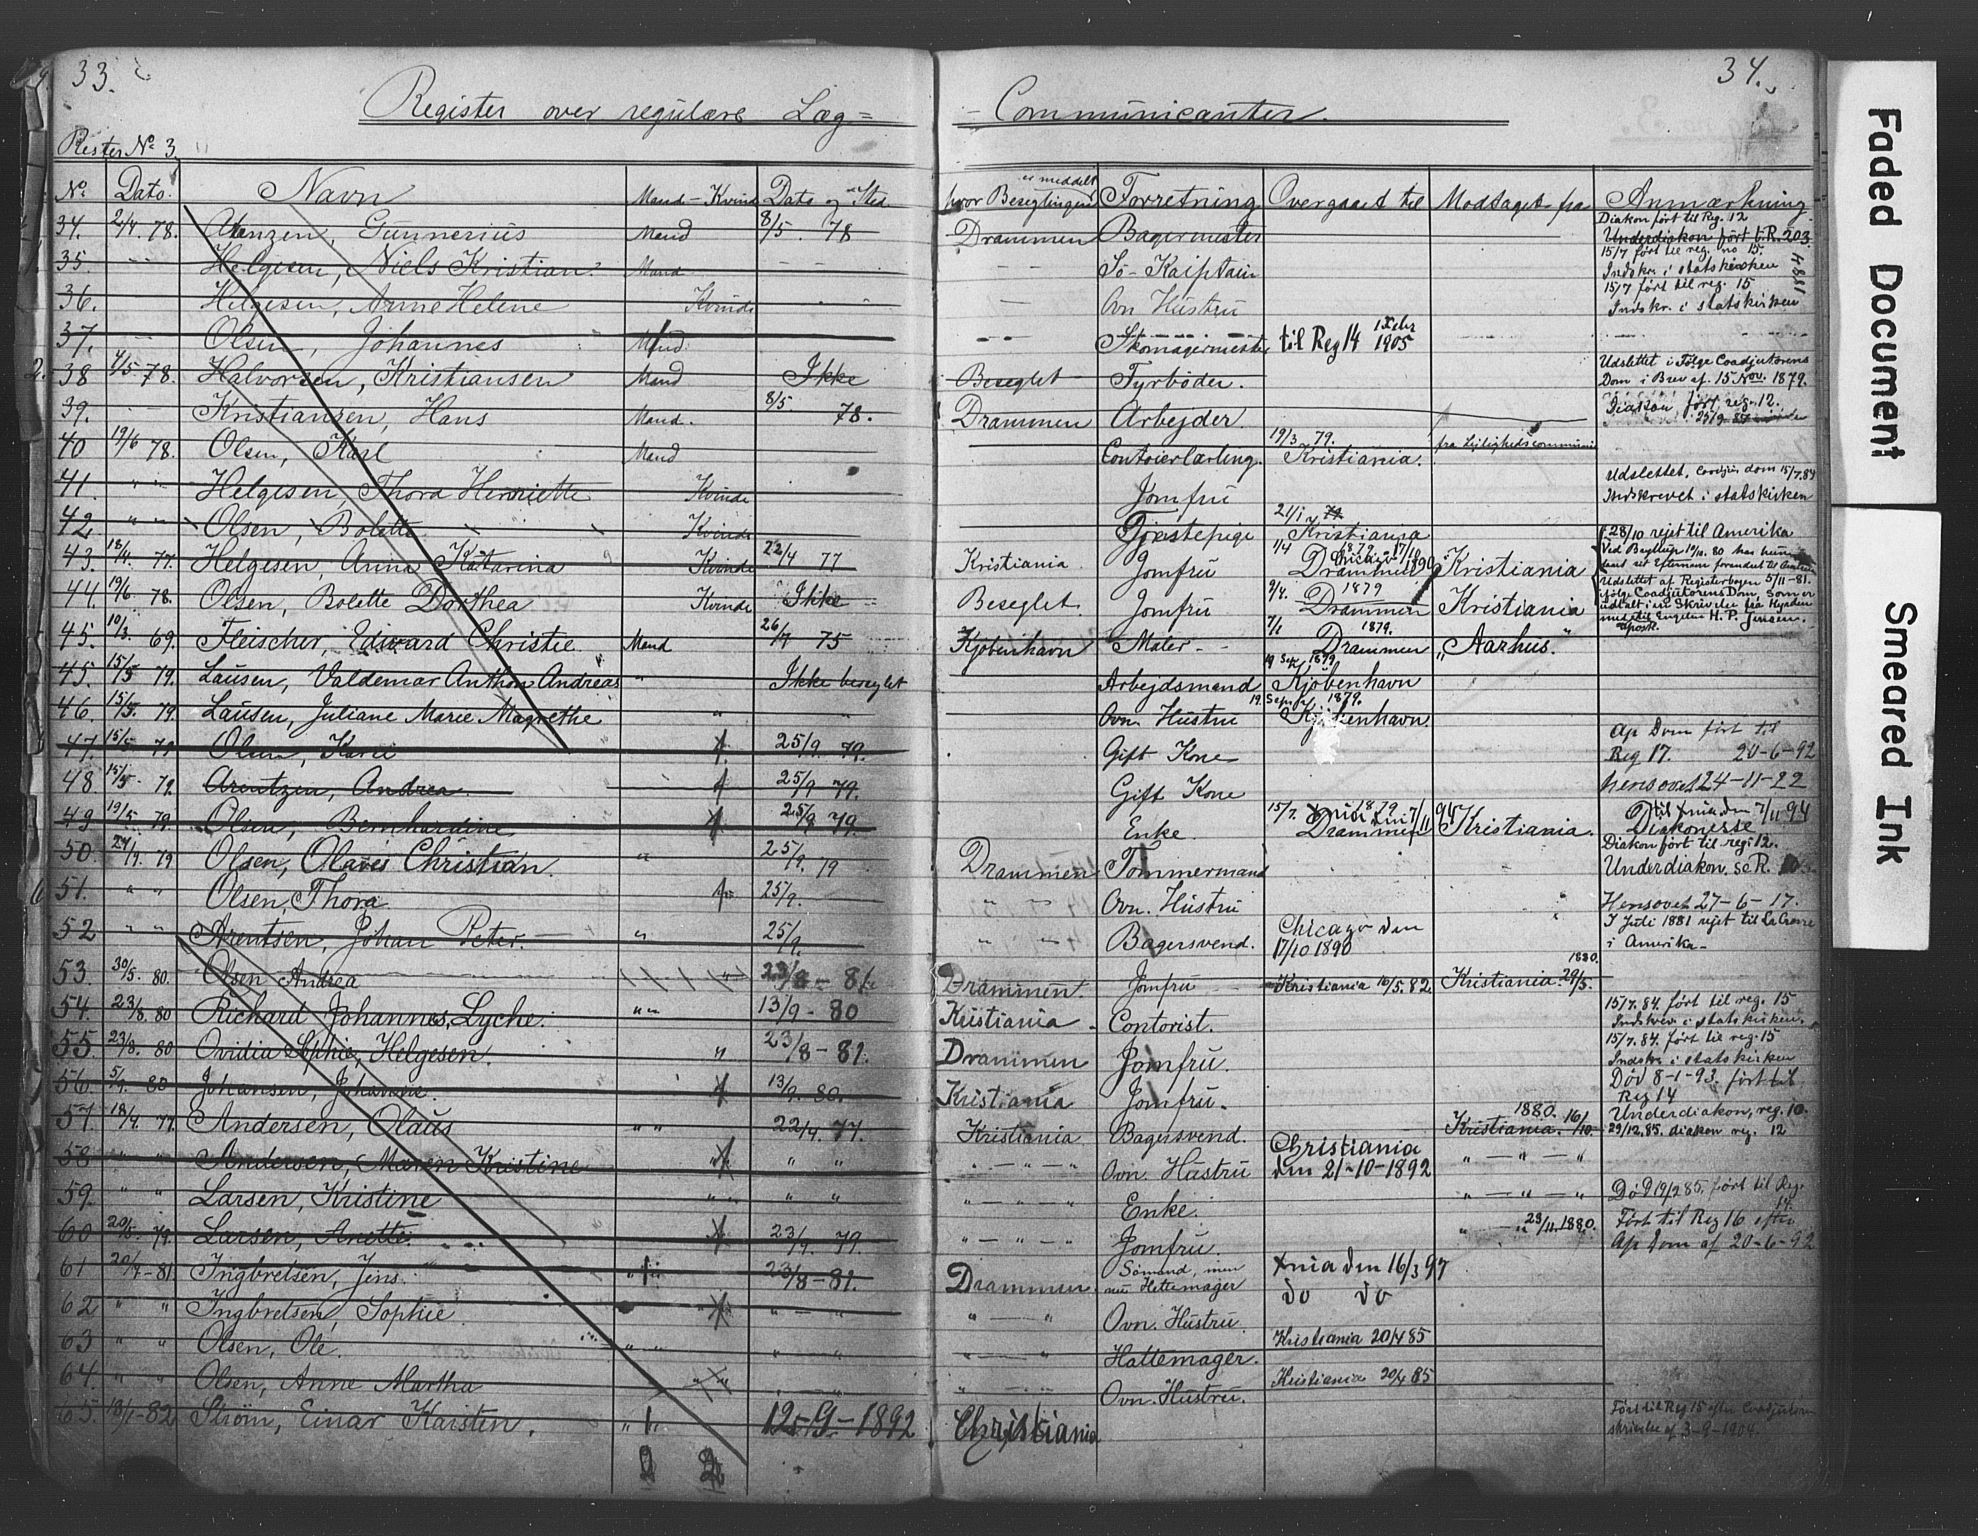 33.
34.
Register over regulære Læg=
- Communicanter.
Register No 3
No. Dato. Navn Mand - Kvinde Dato og Sted hvor Beseglingen er meddelt Forretning Overgaaet til Modtaget fra Anmærkning
34. 2/4 78. Gunnerius Mand 8/5. 78 Drammen Bagermester Diakon ført til Reg. 12
Underdiakon ført t. R. 203
35. Helgesen, Niels Kristian. Mand Sö-Kaiptain 15/7 ført til reg. no 15.
Indskr. i statskirken
1884
36. Helgesen, Anne Helene Kvinde Ovn Hustru 15/7 ført til reg. 15
Indskr. i statskirken
37. Olsen, Johannes Mand Skomagermester til Reg 14 1905
38 4/5 78. Halvorsen, Kristiansen Mand Ikke Beseglet Fyrböder. Udslettet i Følge Coadjutorens
Dom i Brev af 15 Nov. 1879.
39. Kristiansen, Hans Mand. 8/5 78. Drammen Arbejder Diakon, ført reg. 12.
25/9 87
40 19/6 78. Olsen, Karl Mand Contoirlærling. 19/3 79. Kristiania. fra Lejlighedscommuni
41. " " Helgesen, Thora Henriette Kvinde Jomfru Udslettet. dom 15/7.84
Indskrevet i statskirken
42. " " Olsen, Bolette Kvinde Tjenestepige 21/1 79 Kristiania 28/10 rejst til Amerika
43. 18/4. 77. Helgesen, Anna Katarina Kvinde 22/4 77 Kristiania Jomfru 1/4 1879 Drammen Chicago 17/10 1890 Kristiania Ved 10/11. 80 har
44. 19/6 78. Olsen, Bolette Dorthea Kvinde Ikke Beseglet Jomfru 9/4. 1879 Drammen Kristiania Udslettet af Registerbogen 5/11-81.
ifølge Coadjutorens Dom, som er
udtalt i en Skrivelse fra Hyrden
med Engelen H. P. Jensen.
45. 10/3. 69. Fleischer, Edvard Christie Mand 26/4 75 Kjöbenhavn Maler 7/1 1879. Drammen "Aarhus."
45. 15/5 79. Lausen, Valdemar Anthon Andreas " Ikke beseglet Arbejdsmand 19 Sep 1879 Kjöbenhavn
46. 15/5. 79. Lausen, Juliane Marie Magrethe " " Ovn. Hustru 19. Sept 1879. Kjöbenhavn.
47. 15/5 79 Olsen, Karie 25/9. 79. Gift Kone Ap Dom ført til
Reg 17. 20-6-92
48 15/5- 79. Arentzen, Andrea 25/9 79. Gift Kone hensovet 24-11-22
49 19/5. 79. Olsen, Bernhardine 25/9 79. Enke. 15/7. 1879 Drammen Xnia den 7/11 94 Kristiania. til Xnia den 7/11 94
Diakonesse
50. 24/9. 79 Olsen, Olaves Christian. " 25/9. 79 Drammen Tømmermand Diakon ført til reg. 12.
Underdiakon. se R. 10
51. " " Olsen, Thora 25/9. " " Ovn. Hustru Hensovet 27-6-17.
52 " " Arentsen, Johan Peter. " 25/9. " " Bagersvend. Chicago den
17/10 1890 I Juli 1881 rejst til La Crosse
i Amerika-
53. 30/5. 80. Olsen Andrea " 23/8 - 81. Drammen. Jomfru Kristiania 16/5.82. Kristiania. 29/5. 1880.
54. 23/8. 80 Richard Johannes, Lyche. " " 13/9 - 80 Kristiania Contorist. 15/7. 84. ført til reg. 15
Indskrev. i statskirken.
55. 23/8. 80 Ovidia Sophie, Helgesen. " 23/8 - 81. Drammen Jomfru. 15/7. 84. ført til reg. 15
Indskr. i statskirken
56. 5/9. 80 Johansen, Johanne. 13/9. 80. Kristiania Jomfru. Död 8-1-93. ført til
Reg 14
57. 18/4. 77. Andersen, Olaus " " 22/4. 77. Kristiania Bagersvend. Kristiania. 1880. 16/10. Underdiakon, reg. 10.
29/12.85. diakon reg. 12
58 " " Andersen, Maren Kristine " " " " - " - " Ovn. Hustru Christiania
den 21-10-1892 " - " - "
59. " " Larsen, Kristine " " " " " - " - " Enke. " - " - " Död 19/2 85. ført til Reg.
14.
60 20/5. 79. Larsen, Anette. 23/9 79. " - " - " Jomfru. " 23/11. 1880. Ført til Reg 16 efter
Ap Dom af 20-6-92
61 20/7-81. Ingbretsen, Jens. " " 23/8-81. Drammen. Sömand, men
nu Hattemager Xnia den 16/3 97
62 " " Ingbretsen, Sophie. " " - " " - " Ovn. Hustru. do do
63 " " Olsen, Ole. " " " - " " - " Hattemager. Kristiania 20/4 85
64. " " Olsen, Anne Martha " " " - " " - " Ovn. Hustru. Kristiania 20/4 85
65. 18/1-82 Strøm, Einar Karsten. " " 12-9-1892 Christiania Ført til Reg 15 efter Coadjutoren
skrivelse af 3-9-1904.
Faded Document
Smeared Ink